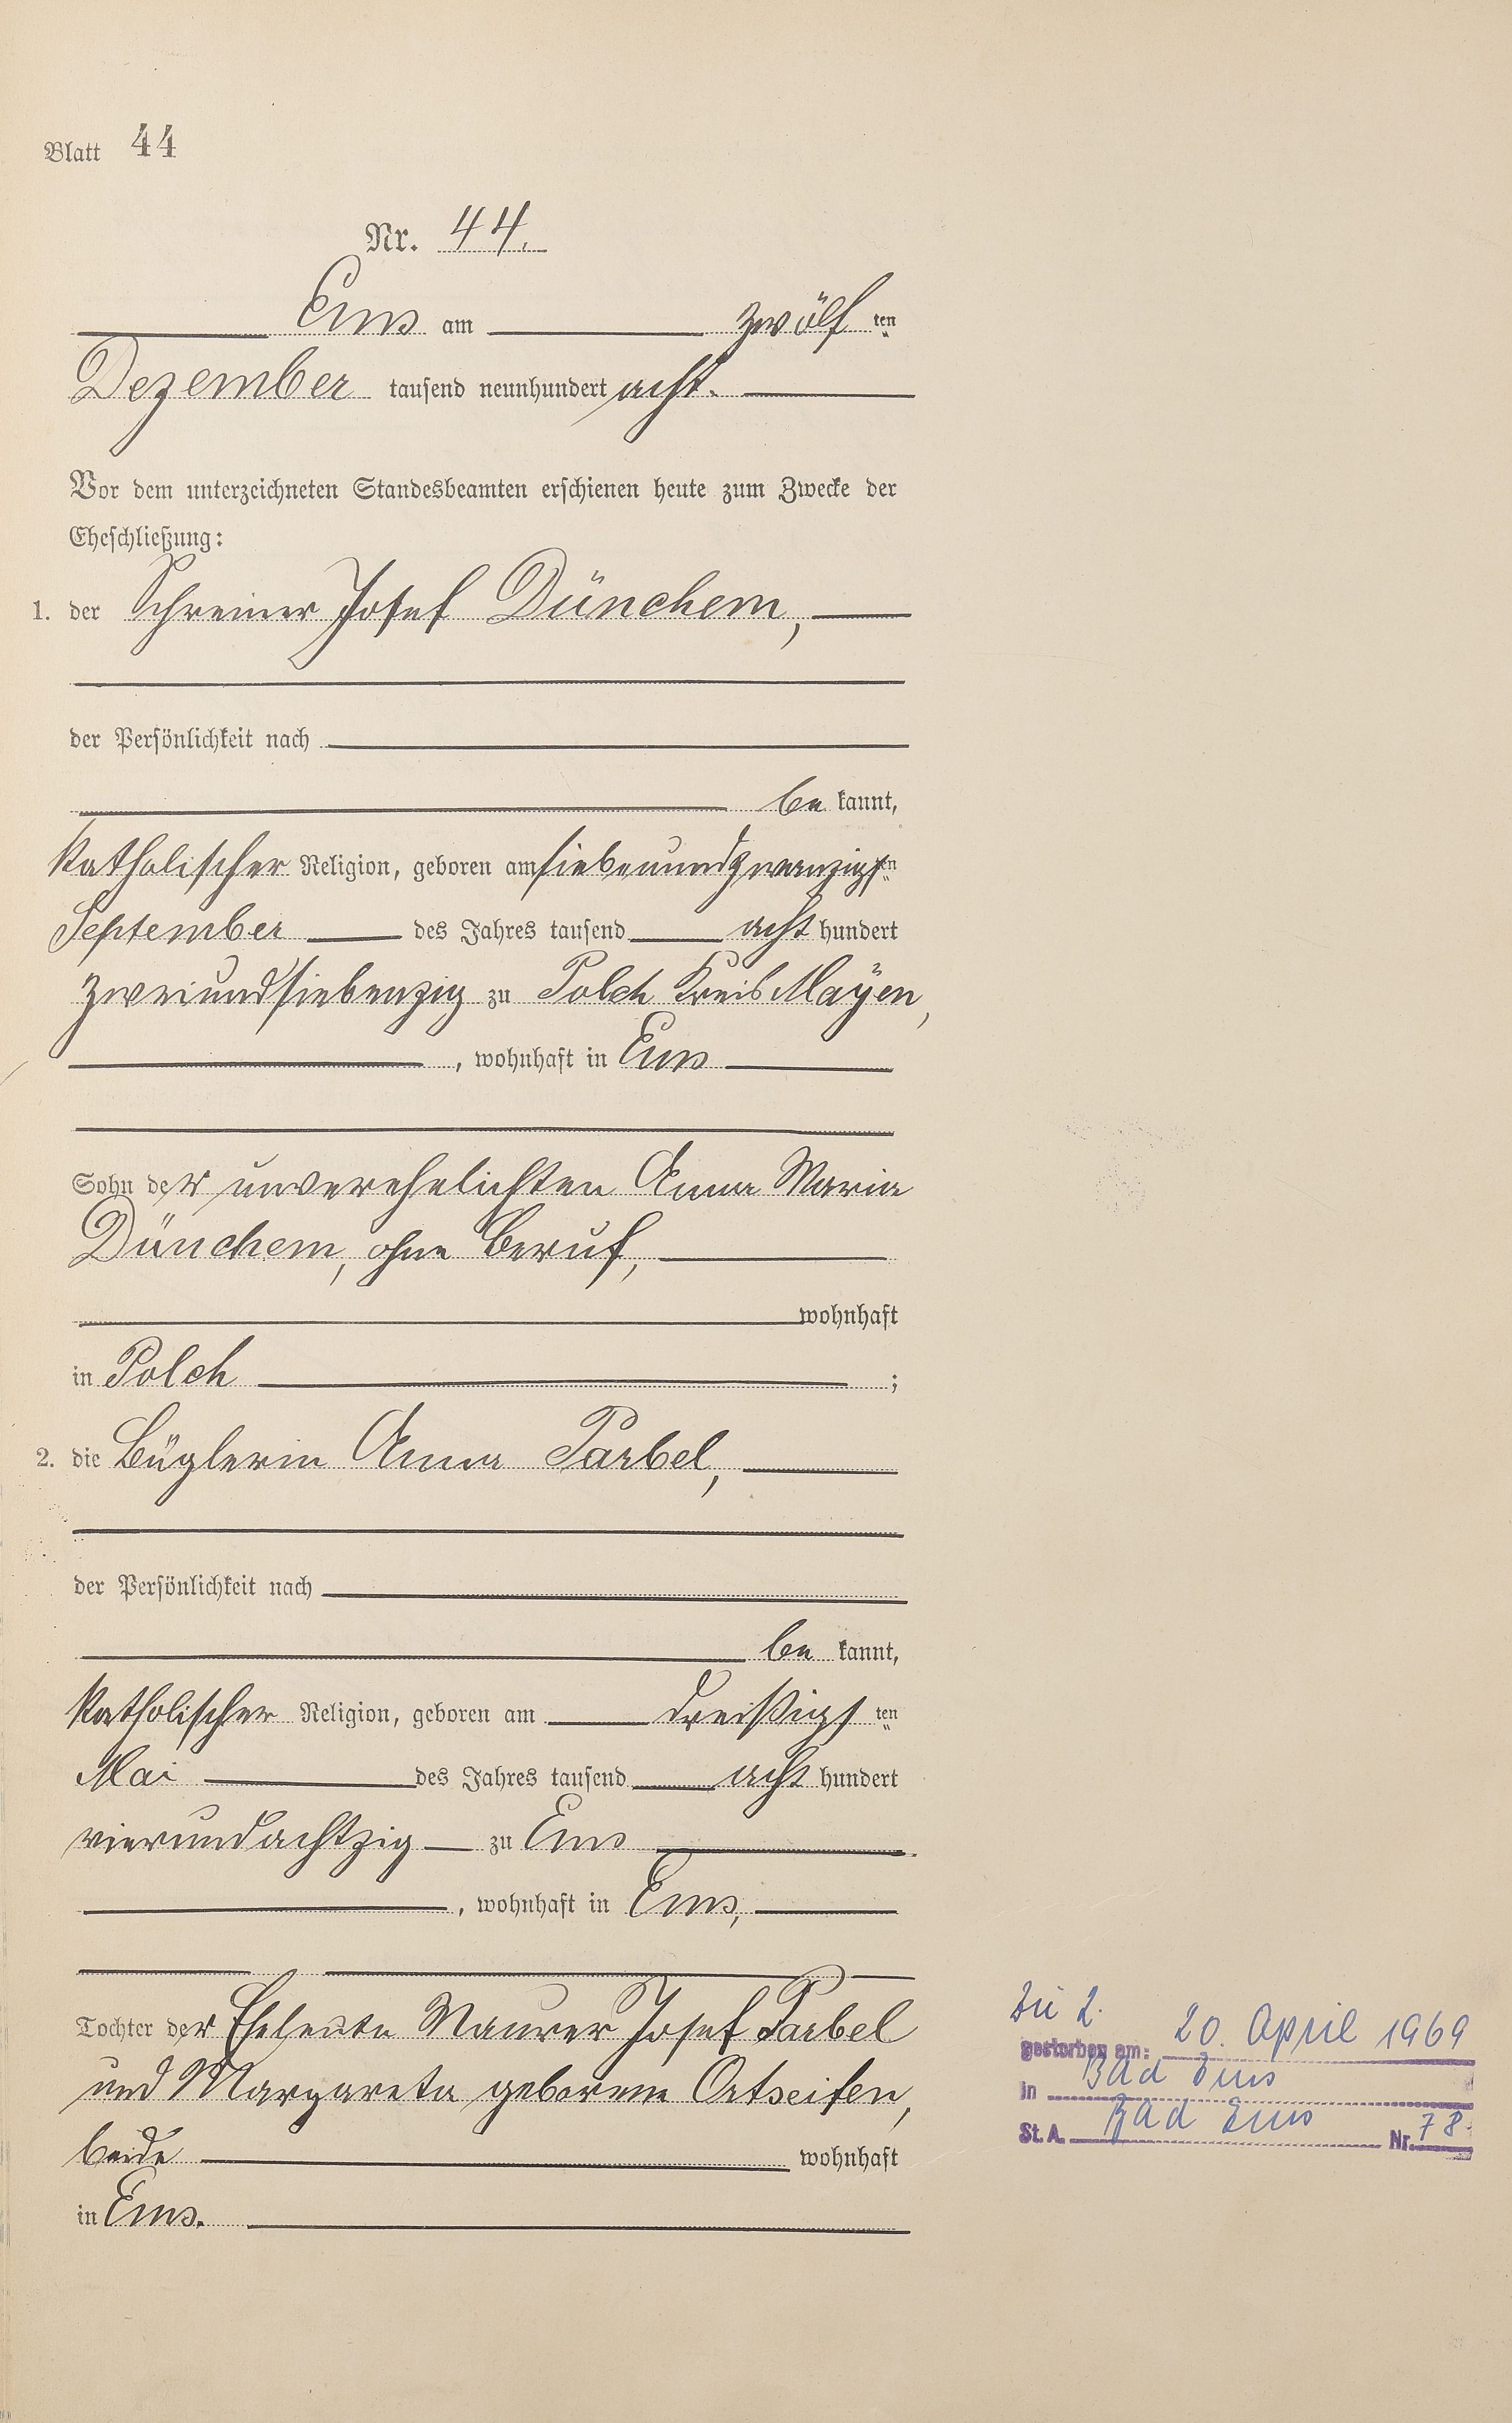 Blatt 44
Nr. 44.
Ems am zwölf ten
Dezember tausend neunhundert acht.
Vor dem unterzeichneten Standesbeamten erschienen heute zum Zwecke der
Eheschließung:
1. der Schreiner Josef Dünchem,
der Persönlichkeit nach
be kannt,
katholischer Religion, geboren am siebenundzwanzigsten
September des Jahres tausend acht hundert
zweiundsiebenzig zu Polch Kreis Mayen,
, wohnhaft in Ems
Sohn der unverehelichten Anna Maria
Dünchem, ohne Beruf,
wohnhaft
in Polch ;
2. die Büglerin Anna Parbel,
der Persönlichkeit nach
be kannt,
katholischer Religion, geboren am dreißigs ten
Mai des Jahres tausend acht hundert
vierundachtzig zu Ems
, wohnhaft in Ems,
Tochter der Eheleute Maurer Josef Parbel
und Margareta geborene Ortseifen,
beide wohnhaft
in Ems.
Die 2.
gestorben am: 20. April 1969
in Bad Ems
St. A. Bad Ems Nr. 78.